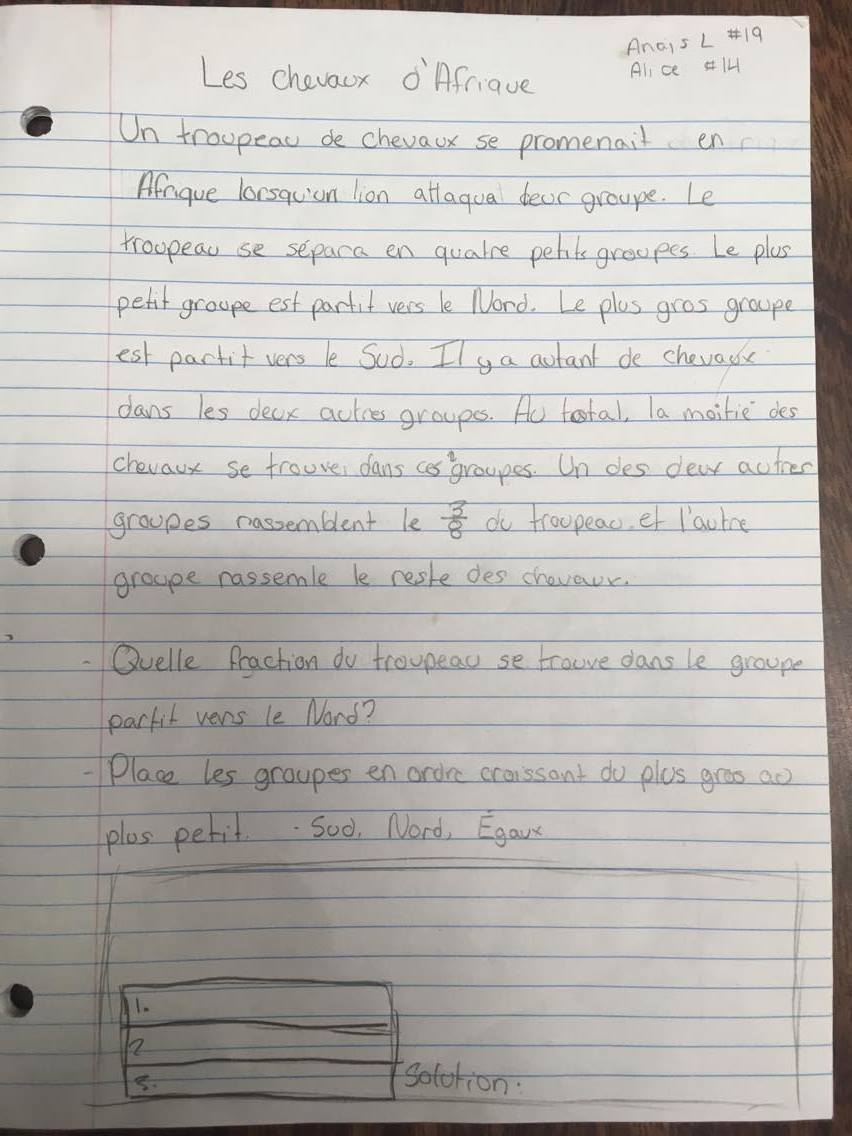 Anais L #19
Alice #14
Les chevaux d'Afrique
Un troupeau de chevaux se promenait en
Afrique lorsqu'un lion attaqua leur groupe. Le
troupeau se sépara en quatre petits groupes. Le plus
petit groupe est partit vers le Nord. Le plus gros groupe
est partit vers le Sud. Il y a autant de chevaux
dans les deux autres groupes. Au total, la moitié des
chevaux se trouve dans ces groupes. Un des deux autres
groupes rassemblent le 3/8 du troupeau et l'autre
groupe rassemle le reste des chevaux.
- Quelle fraction du troupeau se trouve dans le groupe
partit vers le Nord?
- Place les groupes en ordre croissant du plus gros au
plus petit. · Sud, Nord, Égaux
1.
2
3.
Solution: